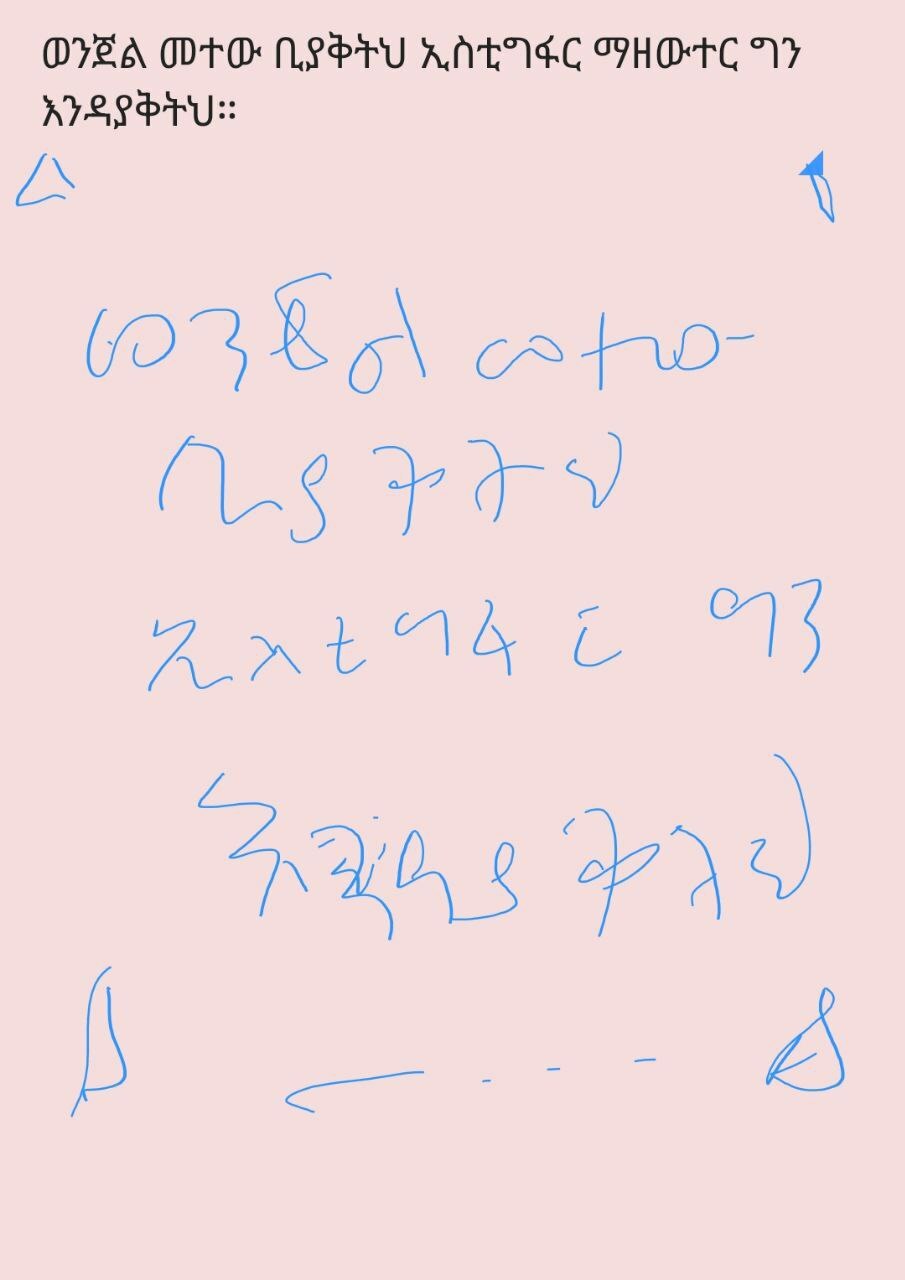 ወንጀል መተው ቢያቅትህ ኢስቲግፋር ማዘውተር ግን
እንዳያቅትህ።
ወንጀል መተው
ቢያቅትህ
ኢስቲግፋር ግን
እንዳያቅትህ